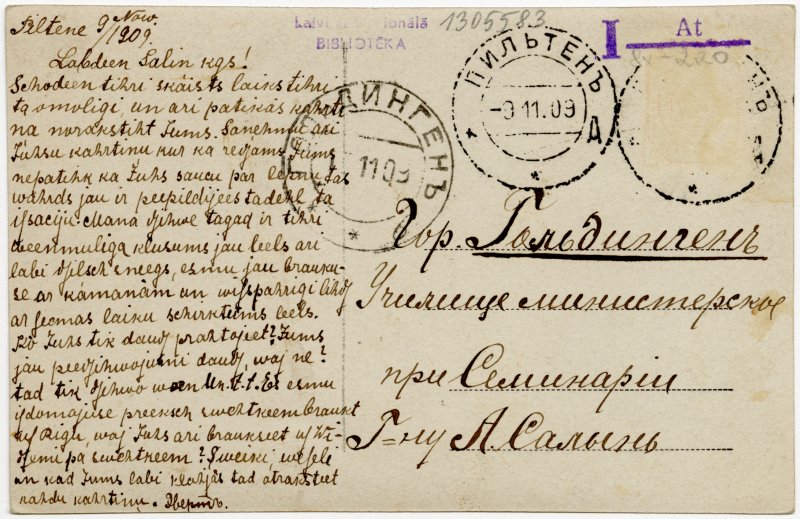 Piltene 9 Now.
/1909.
Labdeen Salin kgs!
Schodeen tihri skaists laiks tihri
ta omoligi, un ari patikás kahrti
na norakstiht Jums. Sanehmu ari
Juhsu kahrtinu kur ka redjams Jums
nepatihk ka Juhs saucu par
wahrds jau ir peepildijees tadehl ta
issaciju. Mana dsihwe tagad ir tihri
weenmuliga klusums jau leels ari
labi dsilsch sneegs, esmu jau brauku-
se ar kámanám un wispahrigi lihds
ar seemas laiku schirktums leels.
Ko Juhs tik daudz prahtojeet? Jums
jau peedsihwojumi daudz, waj ne?
tad tik dsihwo ween Un. t. t. Es esmu
isdomajuse preeksch swehtkeem braukt
us Rigu, waj Juhs ari braukseet us Wi-
dsemi pa swehtkeem? Sweiki, wesele
un kad Jums labi klahjás tad atraksteet
kahdu kahrtinu. Двертъ.
Latvi onālā
BIBLIOTĒKA
1305583
I At
ПИЛЬТЕНЪ
-9 11.09
Д
ДИНГЕНЪ
11 09
Гор. Гольдингенъ
Училище министерское
при Семинаріи
Г-ну А. Салынь